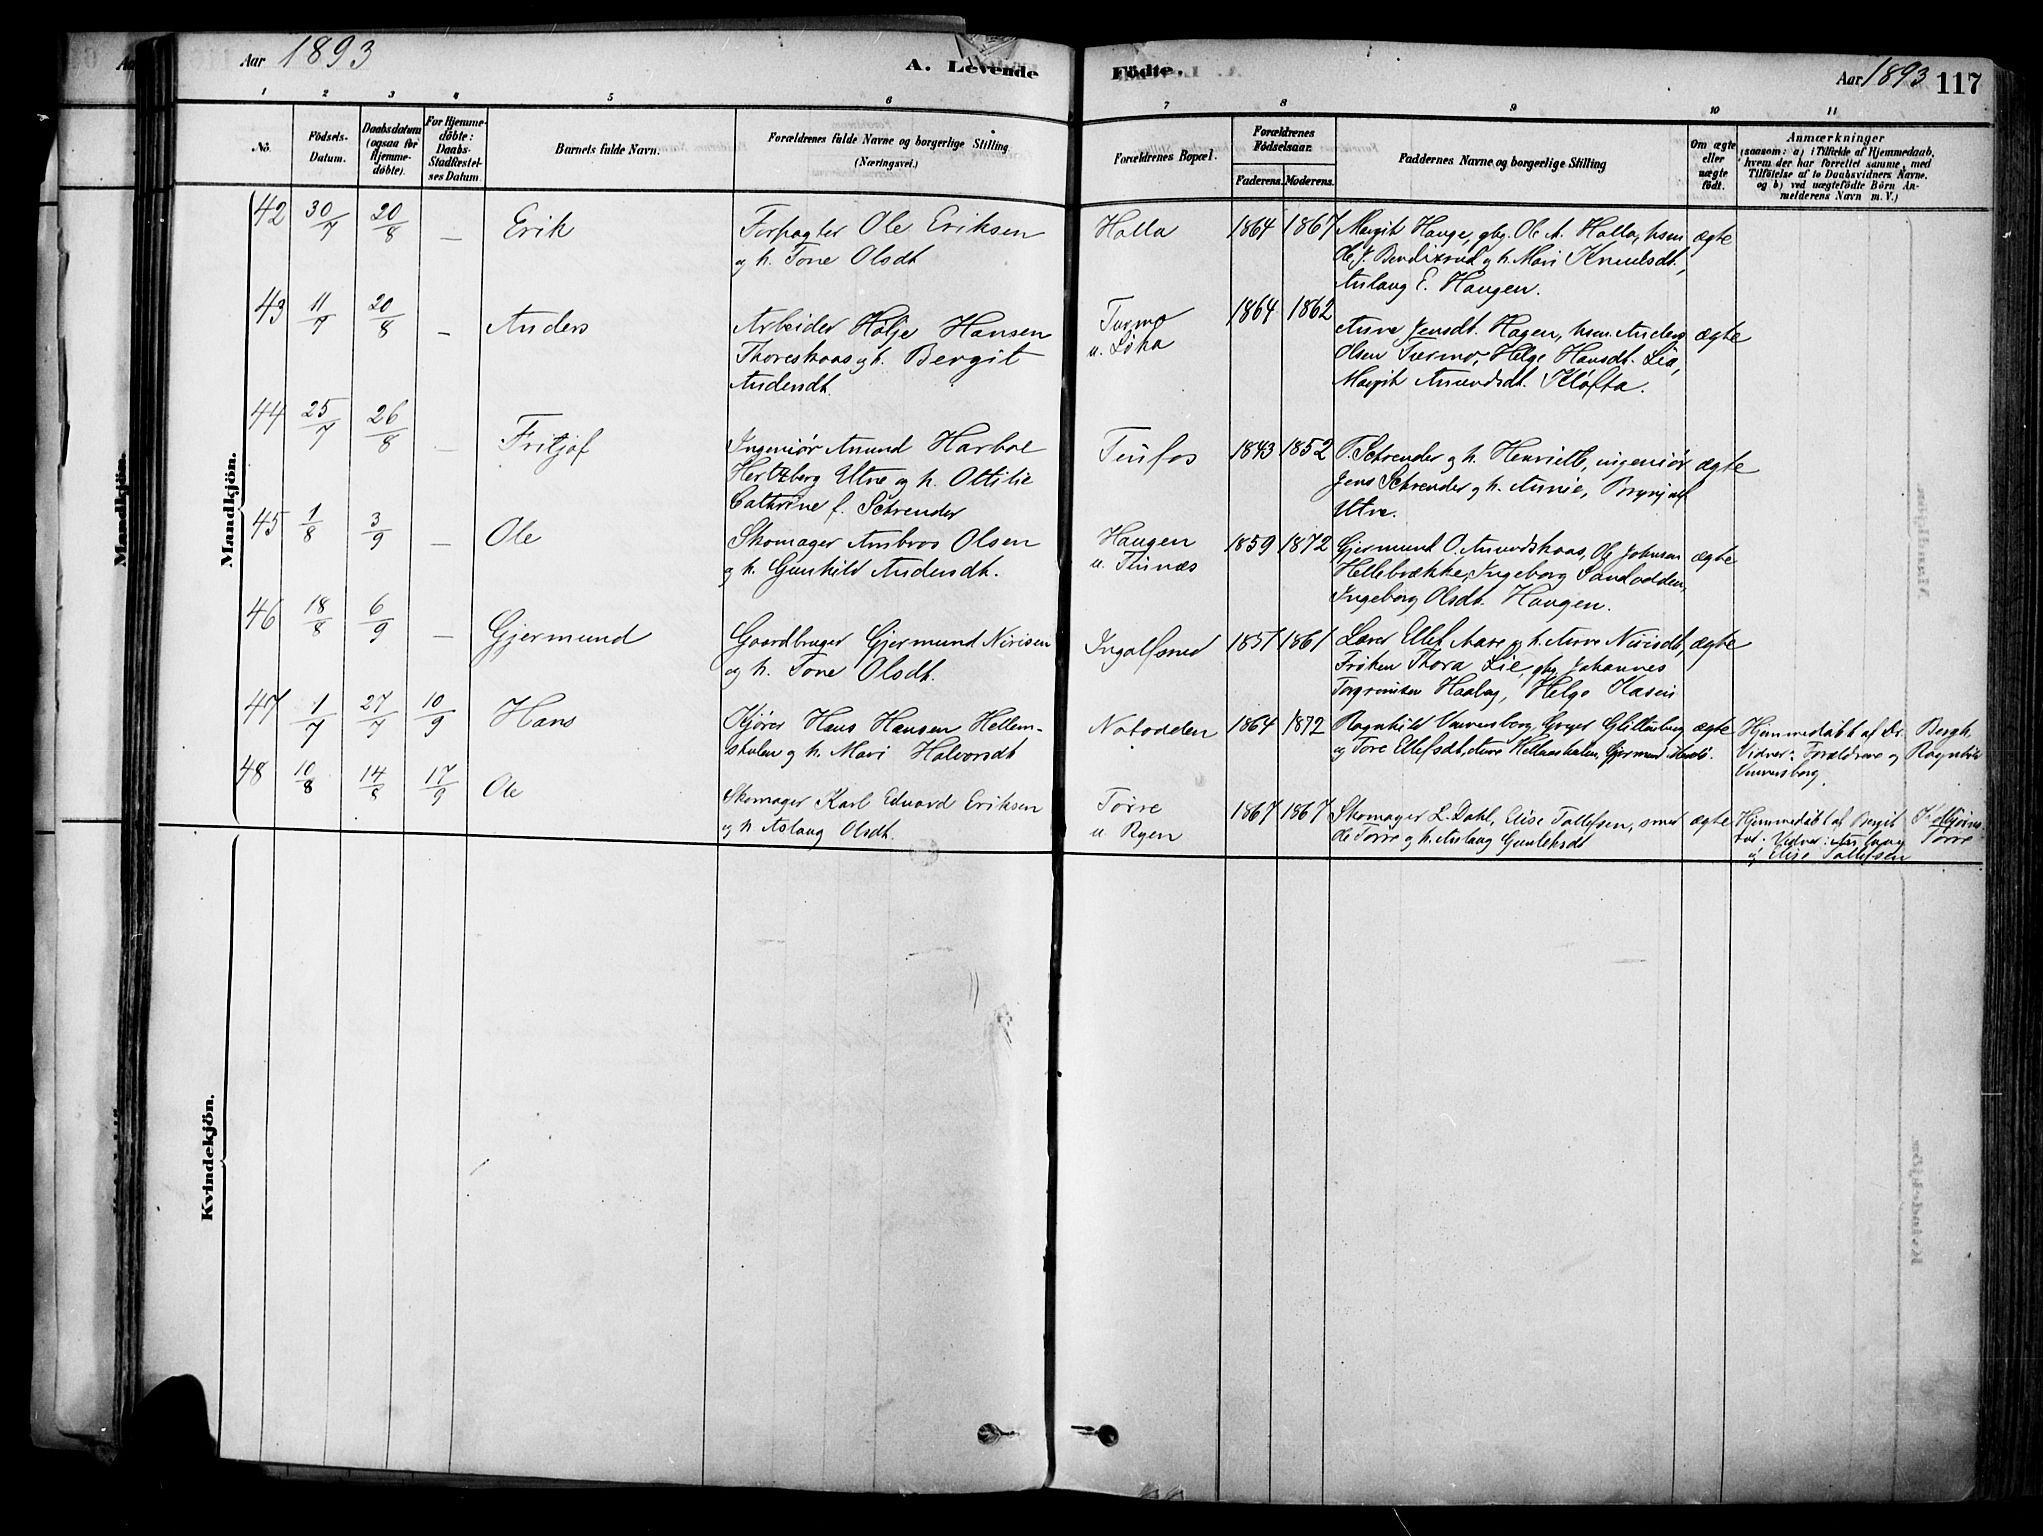 Aar 1893
A. Levende Födte.
Aar 1893 117
1 2 3 4 5 6 7 8 9 10 11
No. Födsels-Datum. Daabsdatum (ogsaa for Hjemme-døbte). For Hjemme-døbte: Daabs-Stadfæstel-ses Datum. Barnets fulde Navn. Forældrenes fulde Navne og borgerlige Stilling (Næringsvei.) Forældrenes Bopæl. Forældrenes Födselsaar. Faderens. Moderens. Faddernes Navne og borgerlige Stilling Om ægte eller uægte födt. Anmærkninger
(saasom: a) i Tilfælde af Hjemmedaab,
hvem der har forrettet samme, med
Tilföielse af to Daabsvidners Navne,
og b) ved uægtefödte Börn An-
melderens Navn m. V.)
Mandkjön.
42 30/7 20/8 — Erik Forpagter Ole Eriksen Holla 1864 1867 Margit Hauge, gbg. Ole A. Holla, ægte
og h. Tone Olsdt
og h. Mari Knutsdt,
Aslaug E. Haugen.
43 11/7 20/8 — Anders Arbeider Hølje Hansen 1864 1862 Anne Jensdt. Hagen, Anders ægte
Thoreskaas og h. Bergit u. Løka Olsen Turmo, Helge Hansdt. Lia,
Andersdt. Margit Kløfta.
44 25/7 26/8 — Fritjof Ingeniør Amund Harboe Tinfos 1843 1852 og h. Henriette, ingeniør ægte
Hertzberg Utne og h. Ottilie Jens Schrender og h. Annie,
Cathrine f. Schrender Utne.
45 1/8 3/9 — Ole Skomager Ambros Olsen Haugen 1859 1872 Gjermund O. Amundskaas, Ole Johnsen ægte
og h. Gunhild Andersdt. u. Tinnæs Hellebrække, Ingeborg Sandodden,
Ingeborg Olsdt. Haugen.
46 18/8 6/9 — Gjermund Gaardbruger Gjermund Nirisen Ingolfsrud 1857 1861 Lærer Ellef Aase og h. Anne Nirisdt, ægte
og h. Tone Olsdt. Frøken Thora Lie, gbg Johannes
Helge Kasin
47 1/7 27/7 10/9 Hans Kjører Hans Hansen Hellem- Notodden 1864 1872 Ragnhild ægte Hjemmedøbt af Dr. Bergh.
skulen og h. Mari Halvorsdt og Tone Ellefsdt, Gjermund Vidner: Forældrene og Ragnhild
48 10/8 14/8 17/9 Ole Skomager Karl Edvard Eriksen Tørre 1867 1867 Skomager L. Dahl, Elise Tollefsen, smed ægte Hjemmedøbt af Bergit
og h Aslaug Olsdt. u Ryen Ole Tørre og h. Aslaug Gunleksdt Vidner: Aslaug Tørre
og Elise Tollefsen
Kvindekjön.